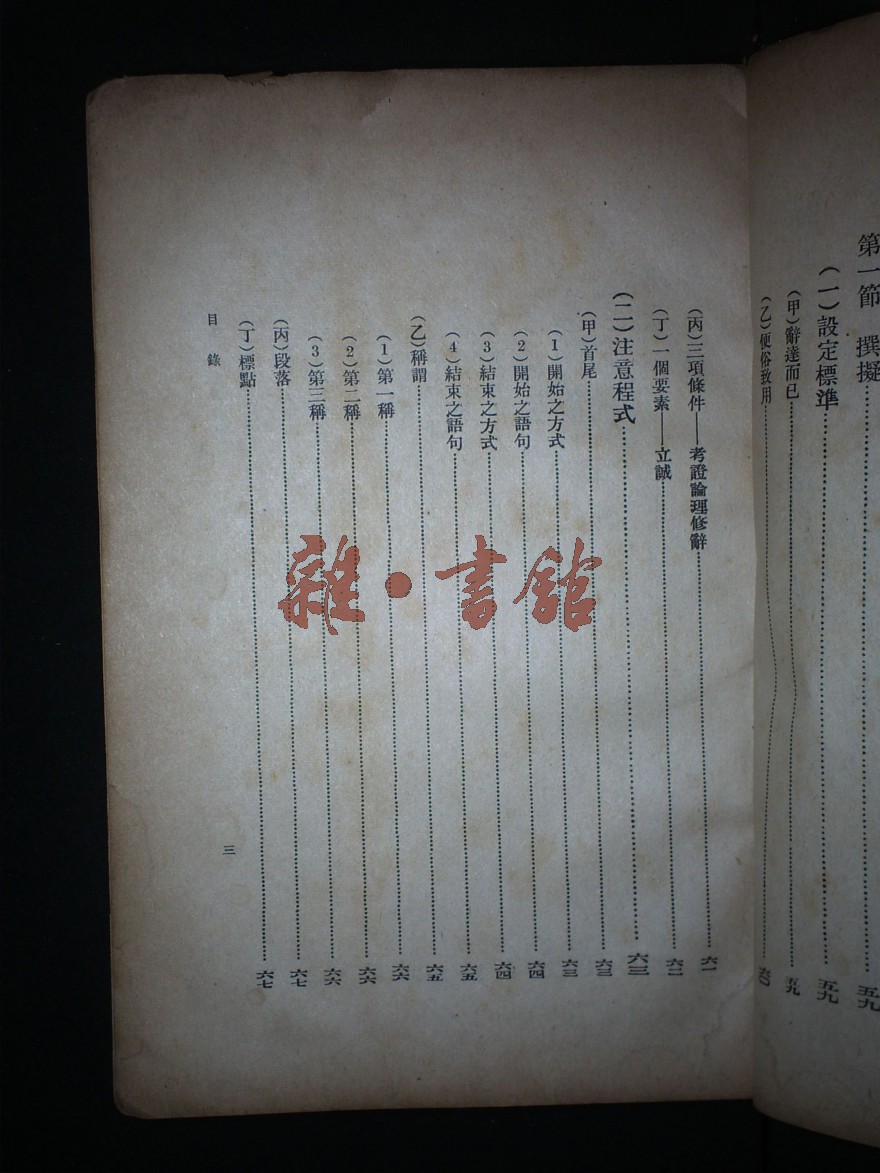 第一節　撰擬……五九
(一)設定標準……五九
(甲)辭達而已……五九
(乙)便俗致用……六〇
(丙)三項條件——考證論理修辭……六一
(丁)一個要素——立誠……六二
(二)注意程式……六三
(甲)首尾……六三
(1)開始之方式……六三
(2)開始之語句……六四
(3)結束之方式……六四
(4)結束之語句……六五
(乙)稱謂……六五
(1)第一稱……六六
(2)第二稱……六六
(3)第三稱……六六
(丙)段落……六七
(丁)標點……六七
目錄　三
雜·書館